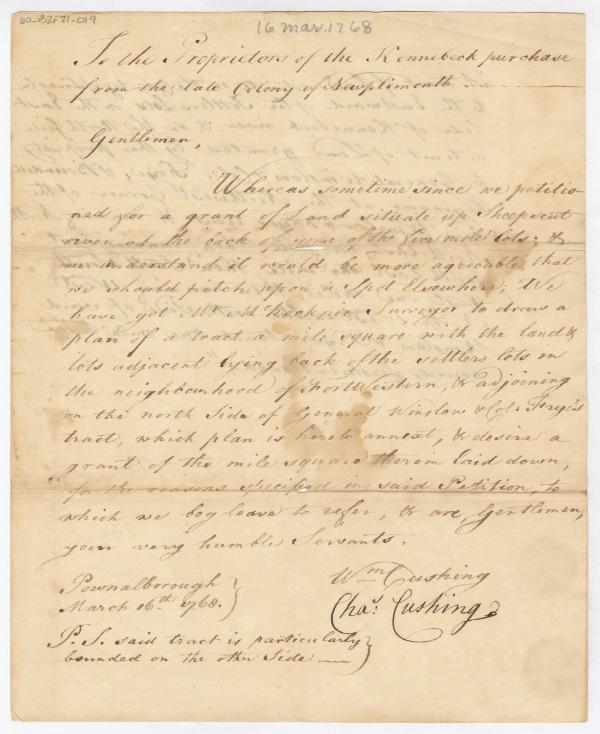 60-BZF21-019
16 Mar. 1768
To the Proprietors of the Kennebeck purchase
from the late Colony of Newplimouth
Gentlemen,
Whereas sometime since we petitio-
ned for a grant of Land situate up Sheepscut
river at the back of some of the five mile lots; &
we understand it would be more agreeable that
we should pitch upon a Spot Elsewhere; We
have got Mr. McKecknie Surveyor to draw a
plan of a tract a mile square with the land &
lots adjacent lying back of the settlers lots in
the neighbourhood of Fort Western, & adjoining
on the north Side of General Winslow & Col. Frye's
tract, which plan is hereto annext, & desire a
grant of the mile square therein laid down,
for the reasons specified in said Petition, to
which we beg leave to refer, & are, Gentlemen,
your very humble Servants.
Pownalborough
March 16th. 1768.
Wm Cushing
Chas. Cushing
P.S. said tract is particularly
bounded on the other Side